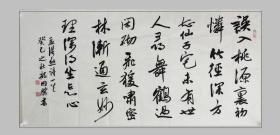 誤入桃源裏初
憐竹徑深方
知仙子宅未有世
人尋舞鶴過
閑砌飛猿嘯密
林漸通玄妙
理深得坐忘心
孟浩然詩一首
癸巳之秋